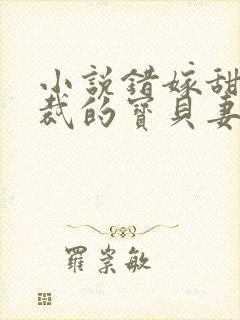 小說錯嫁甜
裁的寶貝妻
羅崇敏